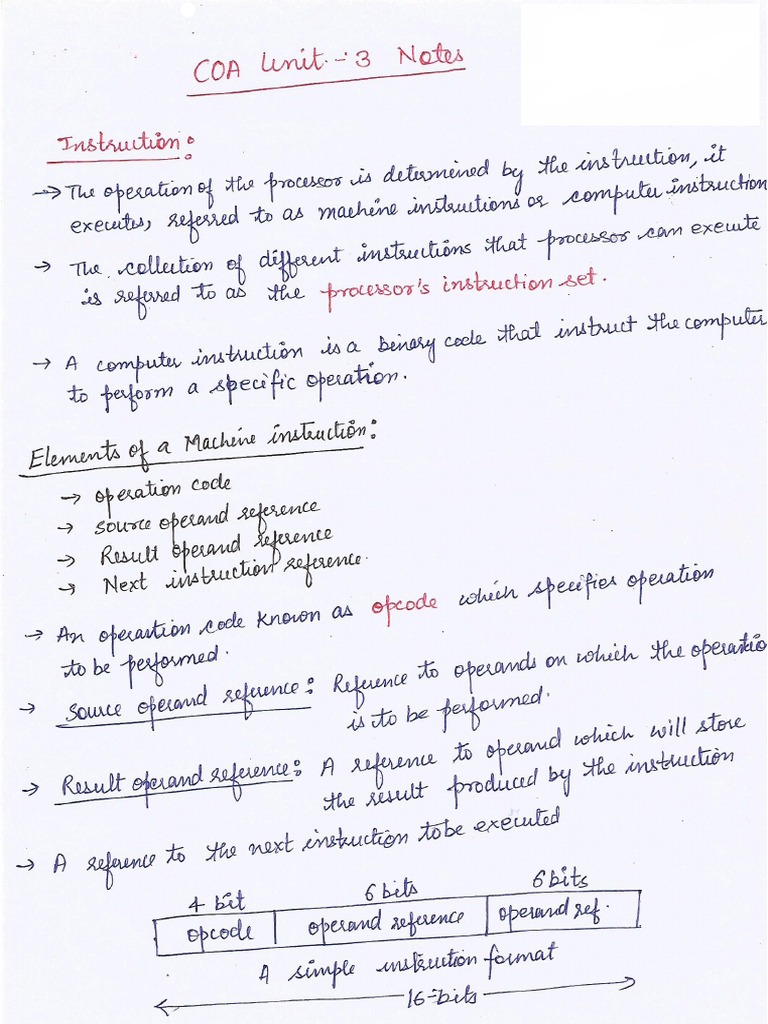 COA Unit:-3 Notes
Instruction:
→ The operation of the processor is determined by the instruction, it
executes, referred to as machine instructions or computer instruction
→ The collection of different instructions that processor can execute
is referred to as the processor's instruction set.
→ A computer instruction is a binary code that instruct the computer
to perform a specific operation.
Elements of a Machine instruction:
→ operation code
→ source operand reference
→ Result operand reference
→ Next instruction reference.
→ An operartion code known as opcode which specifies operation
to be performed.
→ source operand reference: Reference to operands on which the operatio
is to be performed.
→ Result operand reference: A reference to operand which will store
the result produced by the instruction
→ A reference to the next instruction to be executed
4 bit 6 bits 6 bits
opcode operand reference operand ref.
A simple instruction format
16-bits